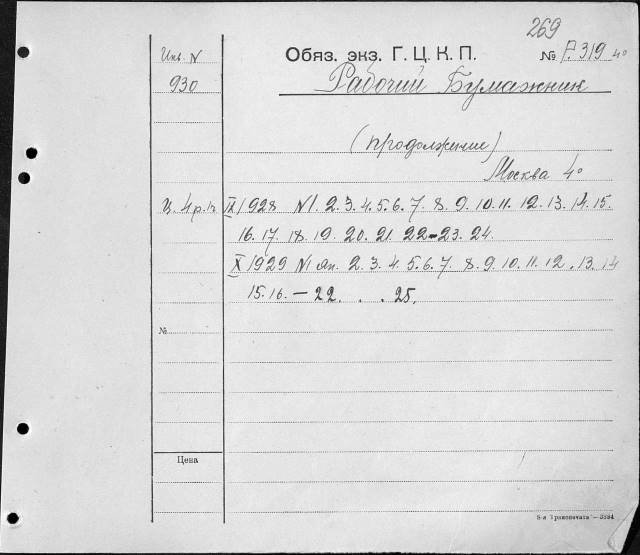 269
Инв. N
Обяз. экз. Г. Ц. К. П.
№ Р.319 4°
930
Рабочий Бумажник
(продолжение)
Москва 4°
Ц. 4 р. IX 1928 N1. 2. 3. 4. 5. 6. 7. 8. 9. 10. 11. 12. 13. 14. 15.
16. 17. 18. 19. 20. 21. 22-23. 24.
X 1929 N1 ян. 2. 3. 4. 5. 6. 7. 8. 9. 10. 11. 12. 13. 14
15. 16. — 22. . . 25.
№
Цена